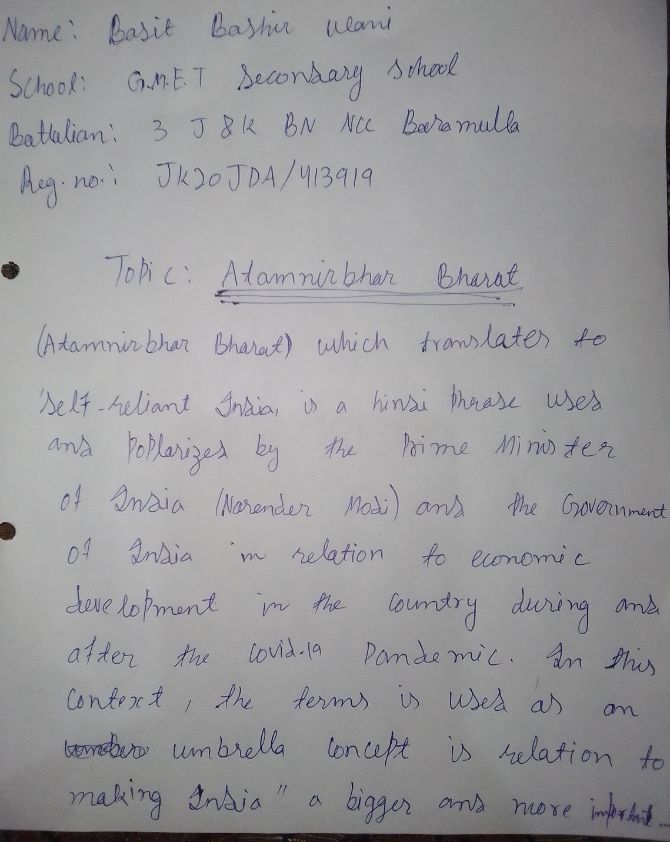 Name: Basit Bashir Wani
School: G.M.E.T Secondary School
Battalian: 3 J & K BN NCC Baramulla
Reg. no.: JK20JDA/413919
Topic: Atamnirbhar Bharat
(Atamnirbhar Bharat) which translates to
'self-reliant India, is a hindi phrase used
and poplarized by the Prime Minister
of India (Narender Modi) and the Government
of India in relation to economic
development in the country during and
after the Covid-19 Pandemic. In this
Context, the terms is used as an
umbrella concept is relation to
making India" a bigger and more important